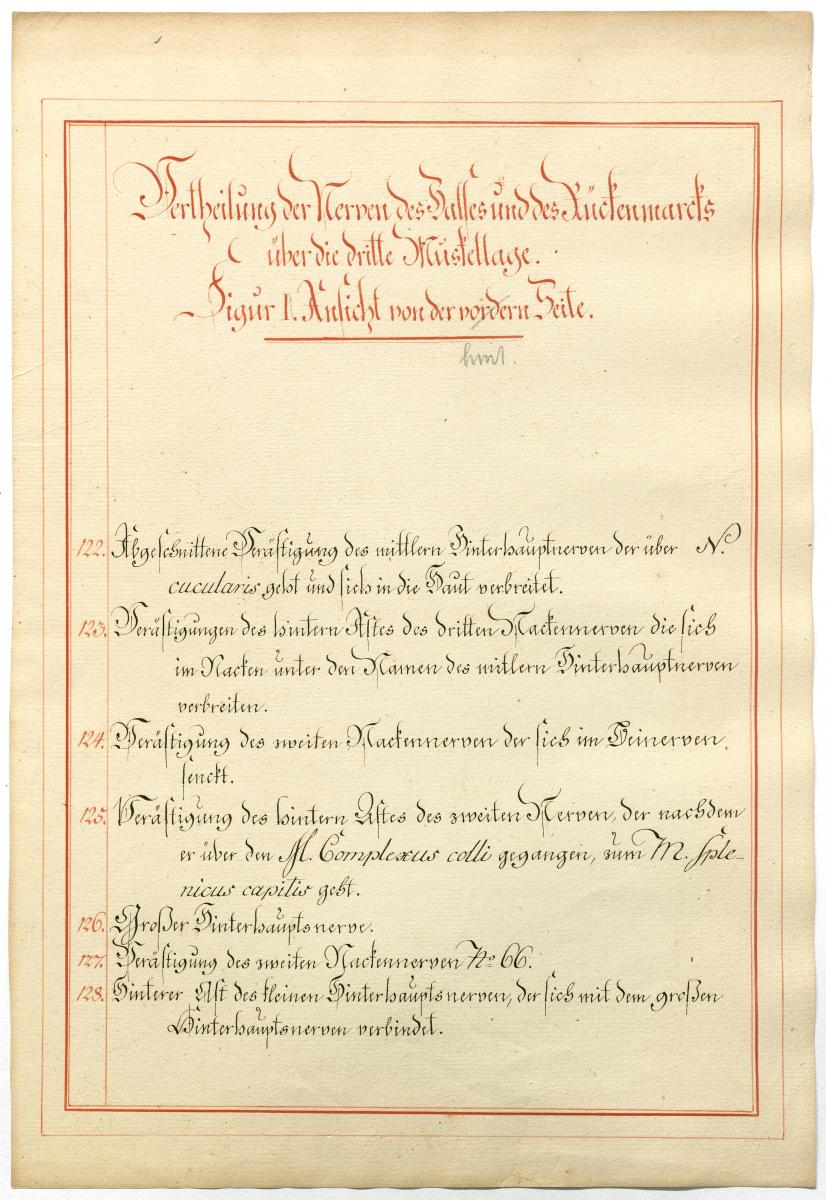 Vertheilung der Nerven des Halses und des Rückenmarcks
über die dritte Muskellage.
Figur I. Ansicht von der vordern Seite.
hint.
122. Abgeschnittene Verästigung des mittlern Hinterhauptnerven der über N.
cucularis geht und sich in die Haut verbreitet.
123. Verästigungen des hintern Astes des dritten Nackennerven die sich
im Nacken unter den Namen des mitlern Hinterhauptnerven
verbreiten.
124. Verästigung des zweiten Nackennerven der sich im Beinerven
senckt.
125. Verästigung des hintern Astes des zweiten Nerven, der nachdem
er über den M. Complexus colli gegangen, zum M. Sple-
nicus capitis geht.
126. Großer Hinterhauptsnerve.
127. Verästigung des zweiten Nackennerven No 66.
128. Hinterer Ast des kleinen Hinterhauptsnerven, der sich mit dem großen
Hinterhauptsnerven verbindet.